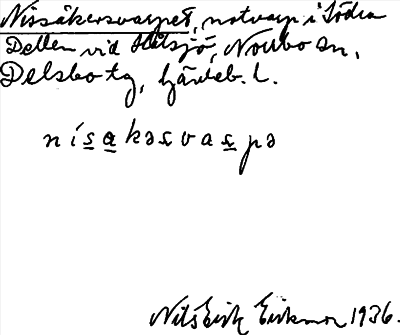 Nissåkersvarpet, notvarp i Södra
Dellen vid Hålsjö, Norrbo sn,
Delsbo tg, Gävleb. l.
nísa̲kəsvas̲pə
Nils Erik Eriksson 1936.